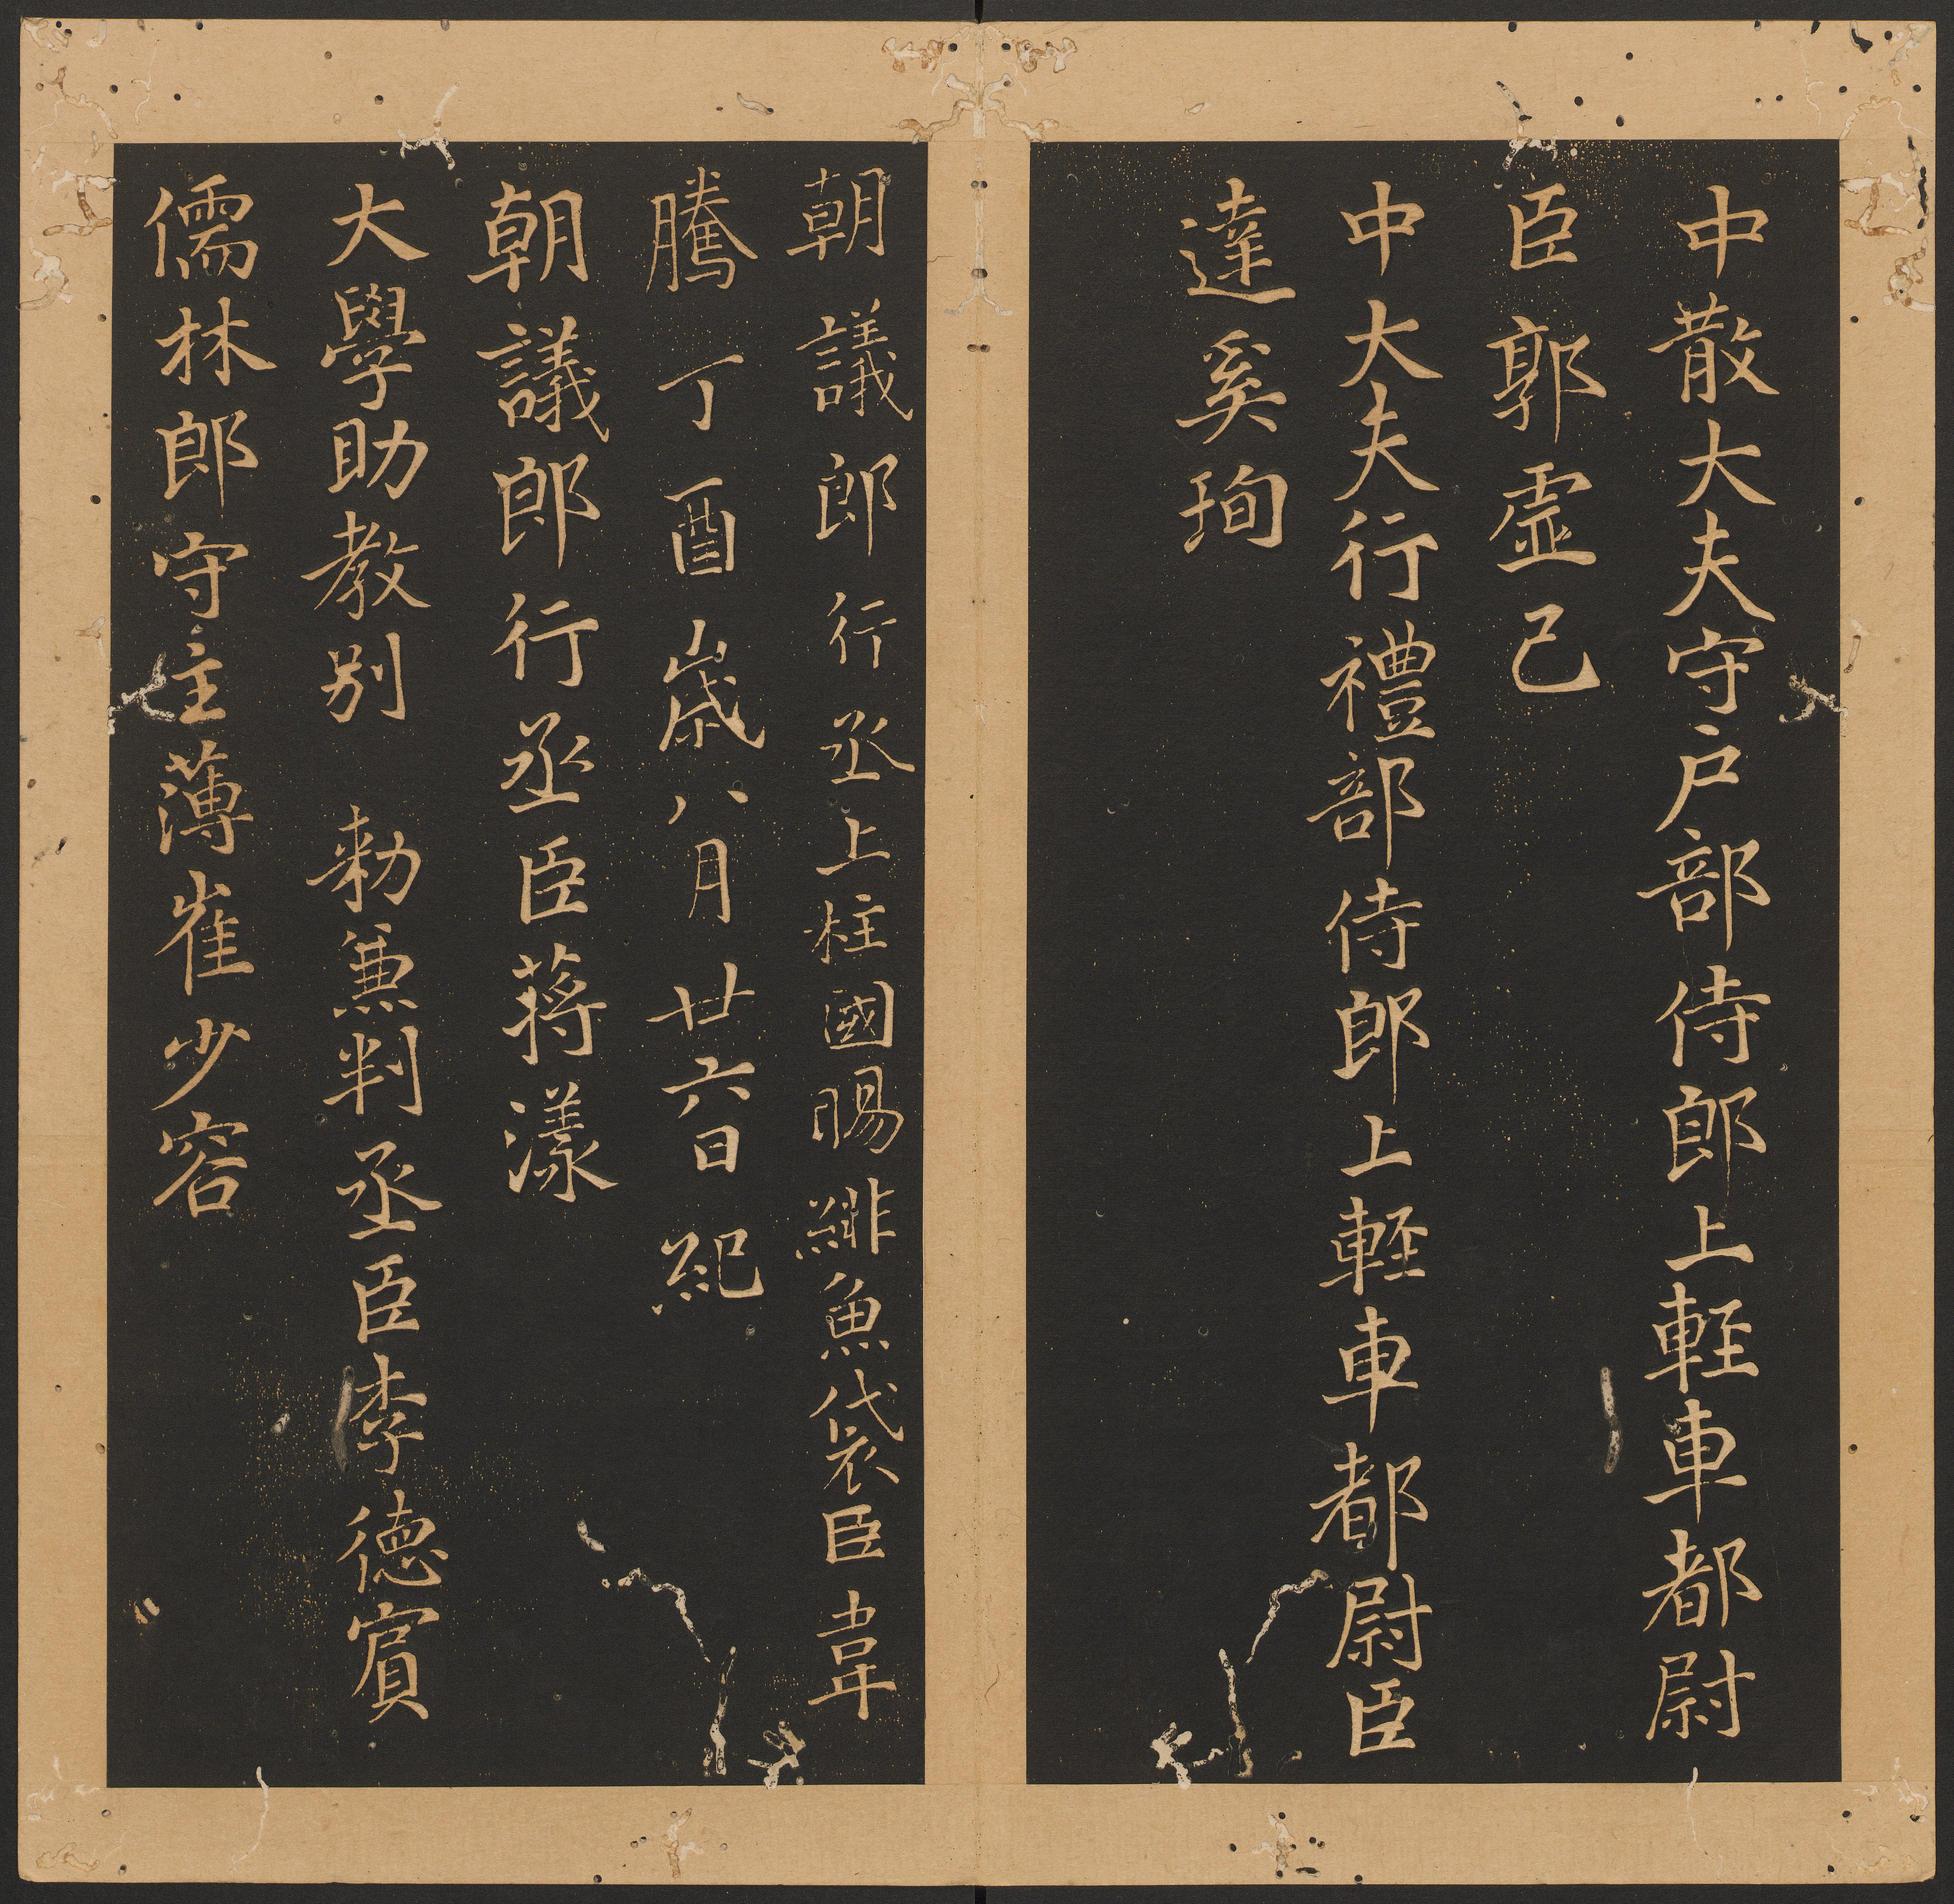 中散大夫守戶部侍郎上輕車都尉
臣郭虛己
中大夫行禮部侍郎上輕車都尉臣
達奚珣
朝議郎行丞上柱國賜緋魚袋臣韋
騰丁酉歲八月廿六日紀
朝議郎行丞臣蔣渙
大學助教別勑兼判丞臣李德賓
儒林郎守主薄崔少容